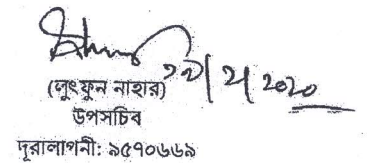 ২৭/২/২০২০
(লুৎফুন নাহার)
উপসচিব
দূরালাপনী: ৯৫৭০৬৬৯